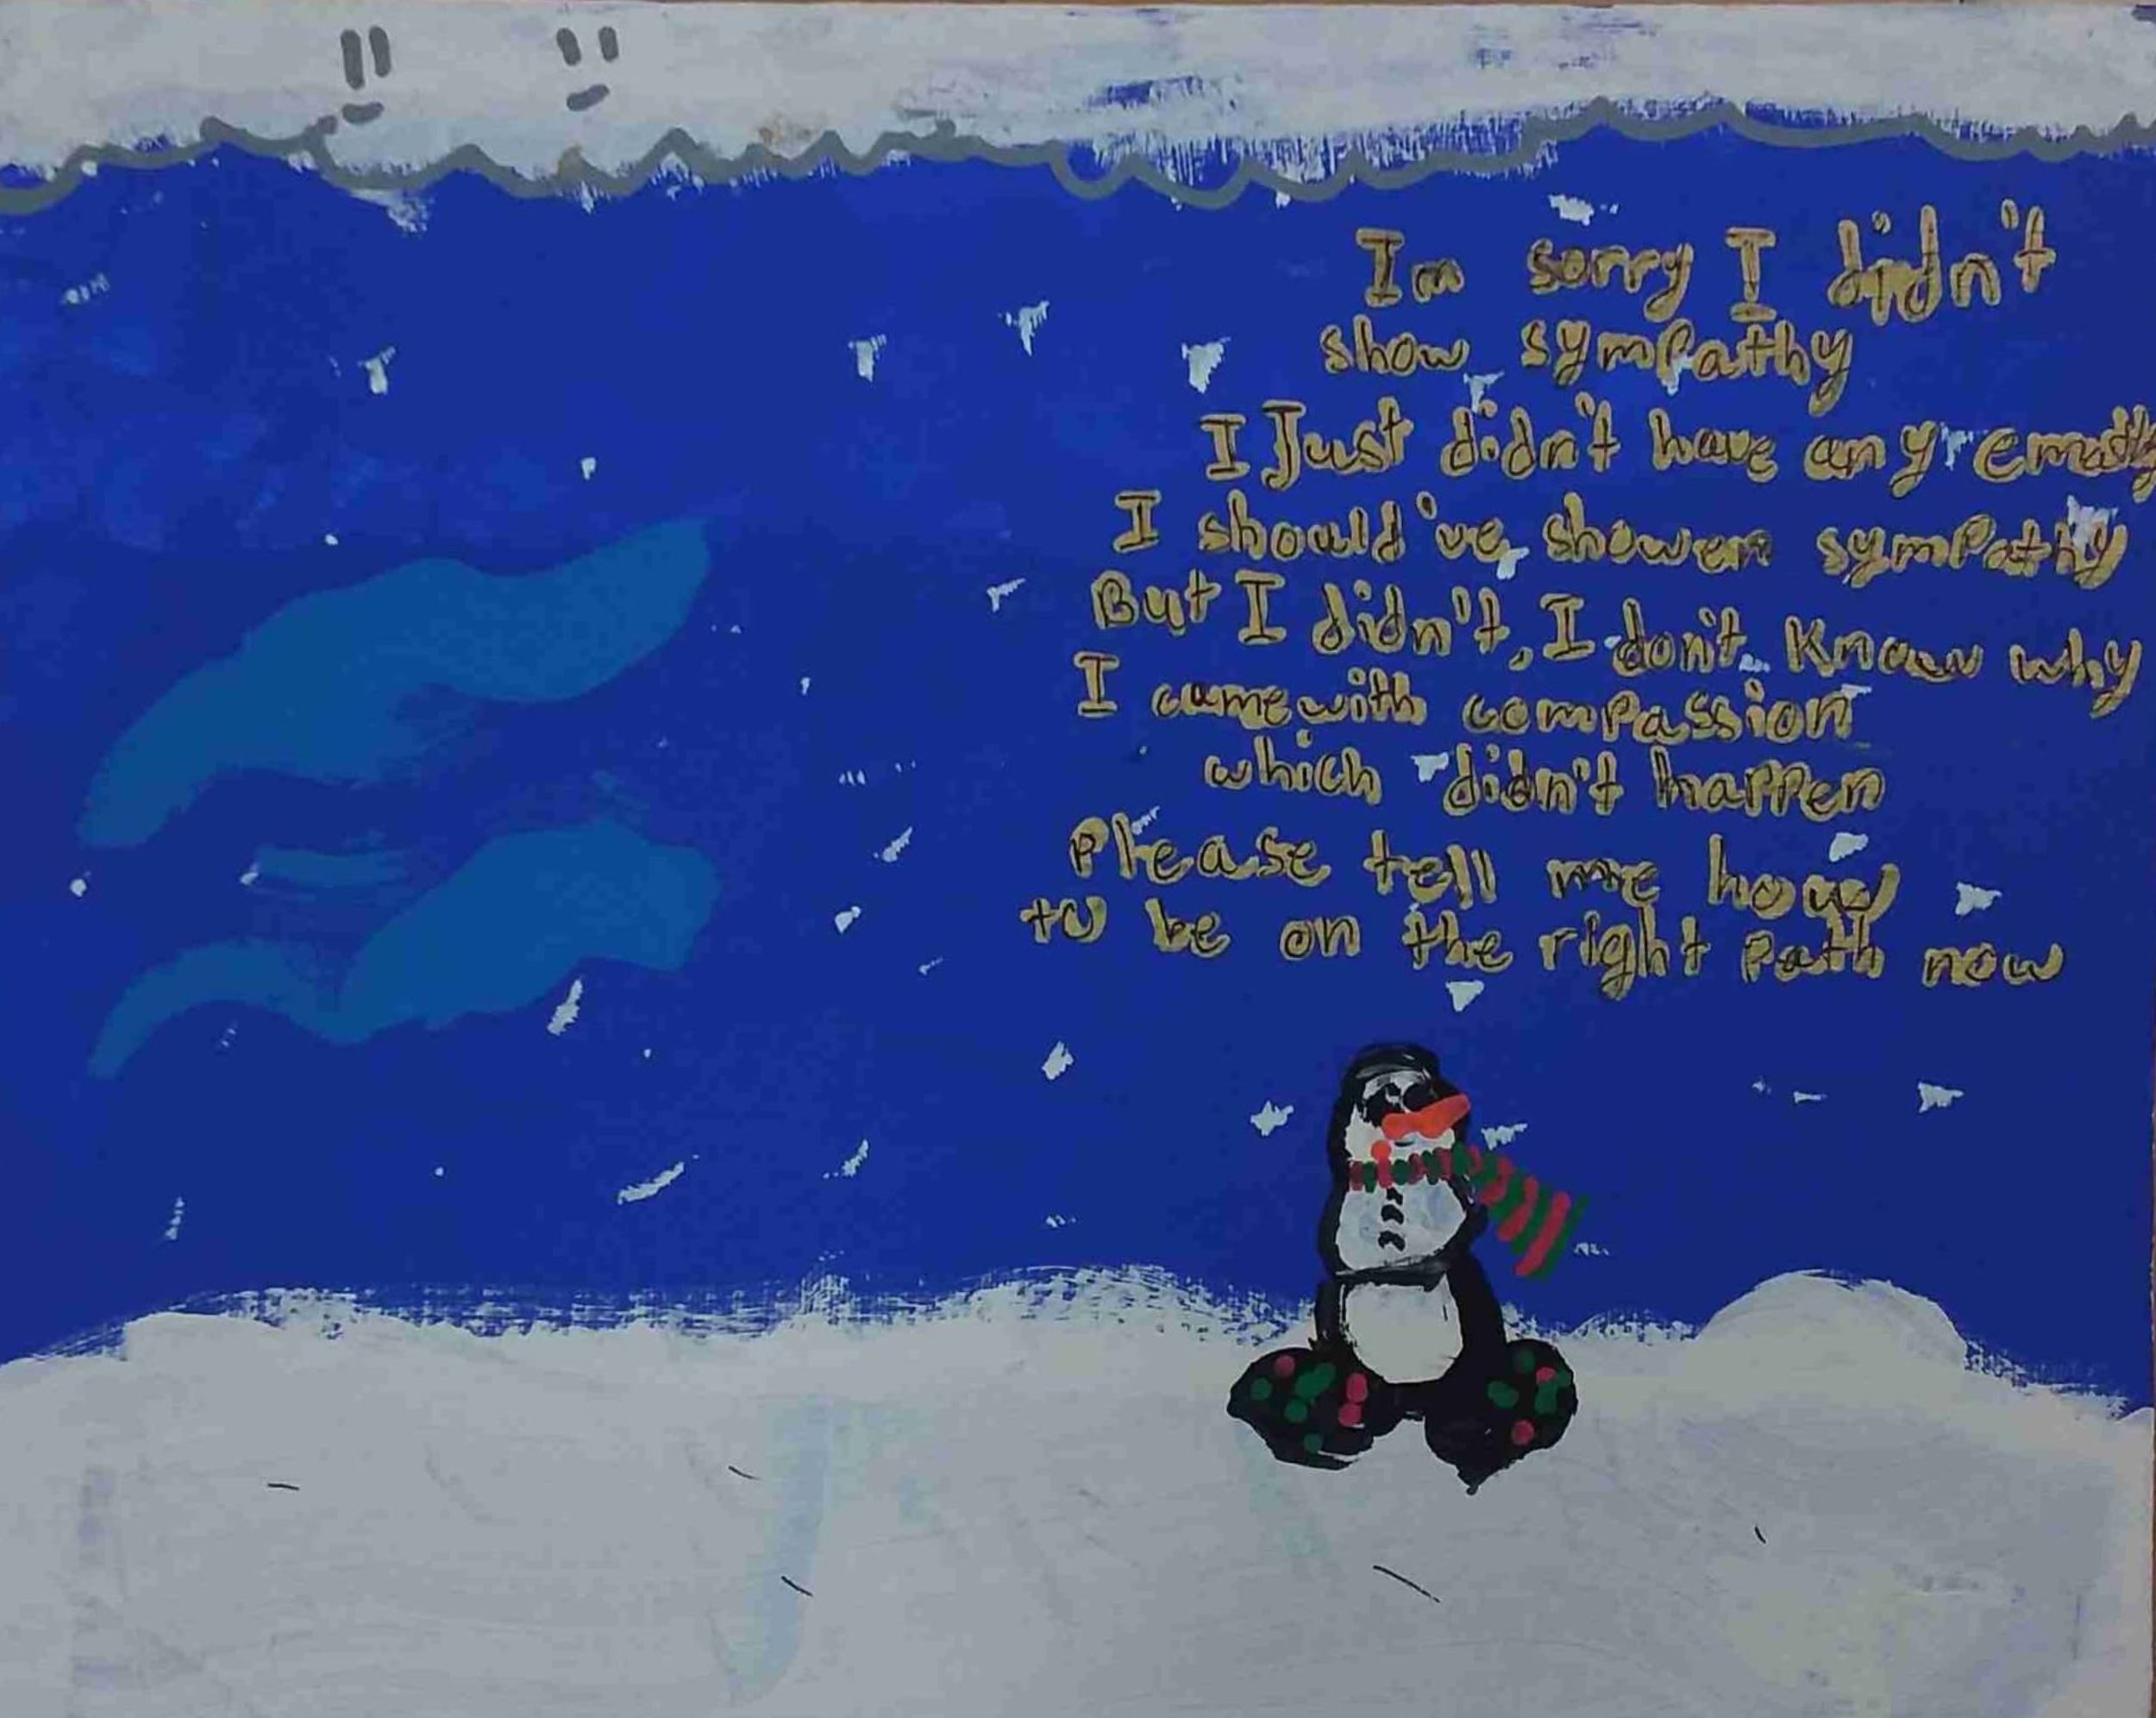 Im sorry I didn't
show sympathy
I Just didn't have any
I should've showen sympathy
But I didn't, I don't Know why
I came with compassion
which didn't happen
Please tell me how
to be on the right path now